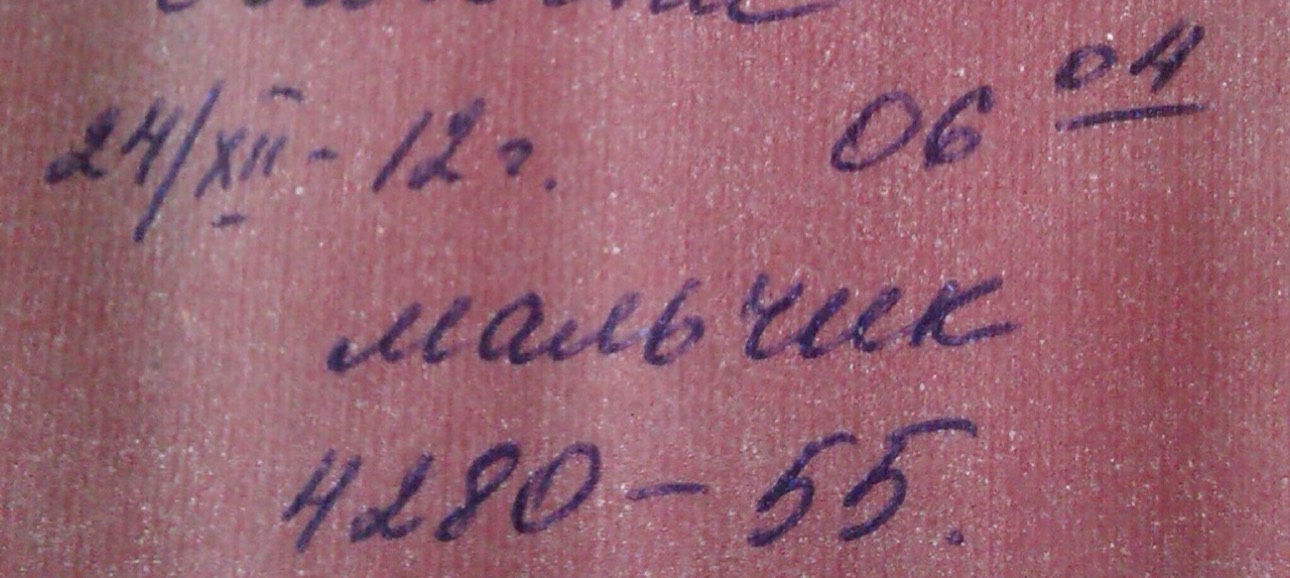 24/XII-12г. 06 04
мальчик
4280-55.